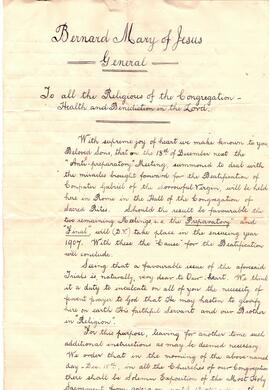 Bernard Mary of Jesus
General
To all the Religious of the Congregation -
Health and Benediction in the Lord.
With supreme joy of heart we make known to you,
Beloved Sons, that on the 18th of December next the
"Anti-preparatory" Meeting, summoned to deal with
the miracles brought forward for the Beatification of
Confrater Gabriel of the Sorrowful Virgin, will be held
here in Rome in the Hall of the Congregation of
Sacred Rites. Should the result be favourable the
two remaining Meetings i.e. the "Preparatory" and
"Final" will (D.V.) take place in the ensuing year
1907. With these the "Cause" for the Beatification
will conclude.
Seeing that a favourable issue of the aforesaid
Trials is, naturally, very dear to Our heart, We think it
a duty to inculcate on all of you the necessity of
fervent prayer to God that He may hasten to glorify
here on earth His faithful Servant and our Brother
in Religion.
For this purpose, leaving for another time such
additional instructions as may be deemed necessary,
We order that in the morning of the above-named
day - Dec. 18th, in all the Churches of our Congregation
there shall be Solemn Exposition of the Most Holy
Sacrament from